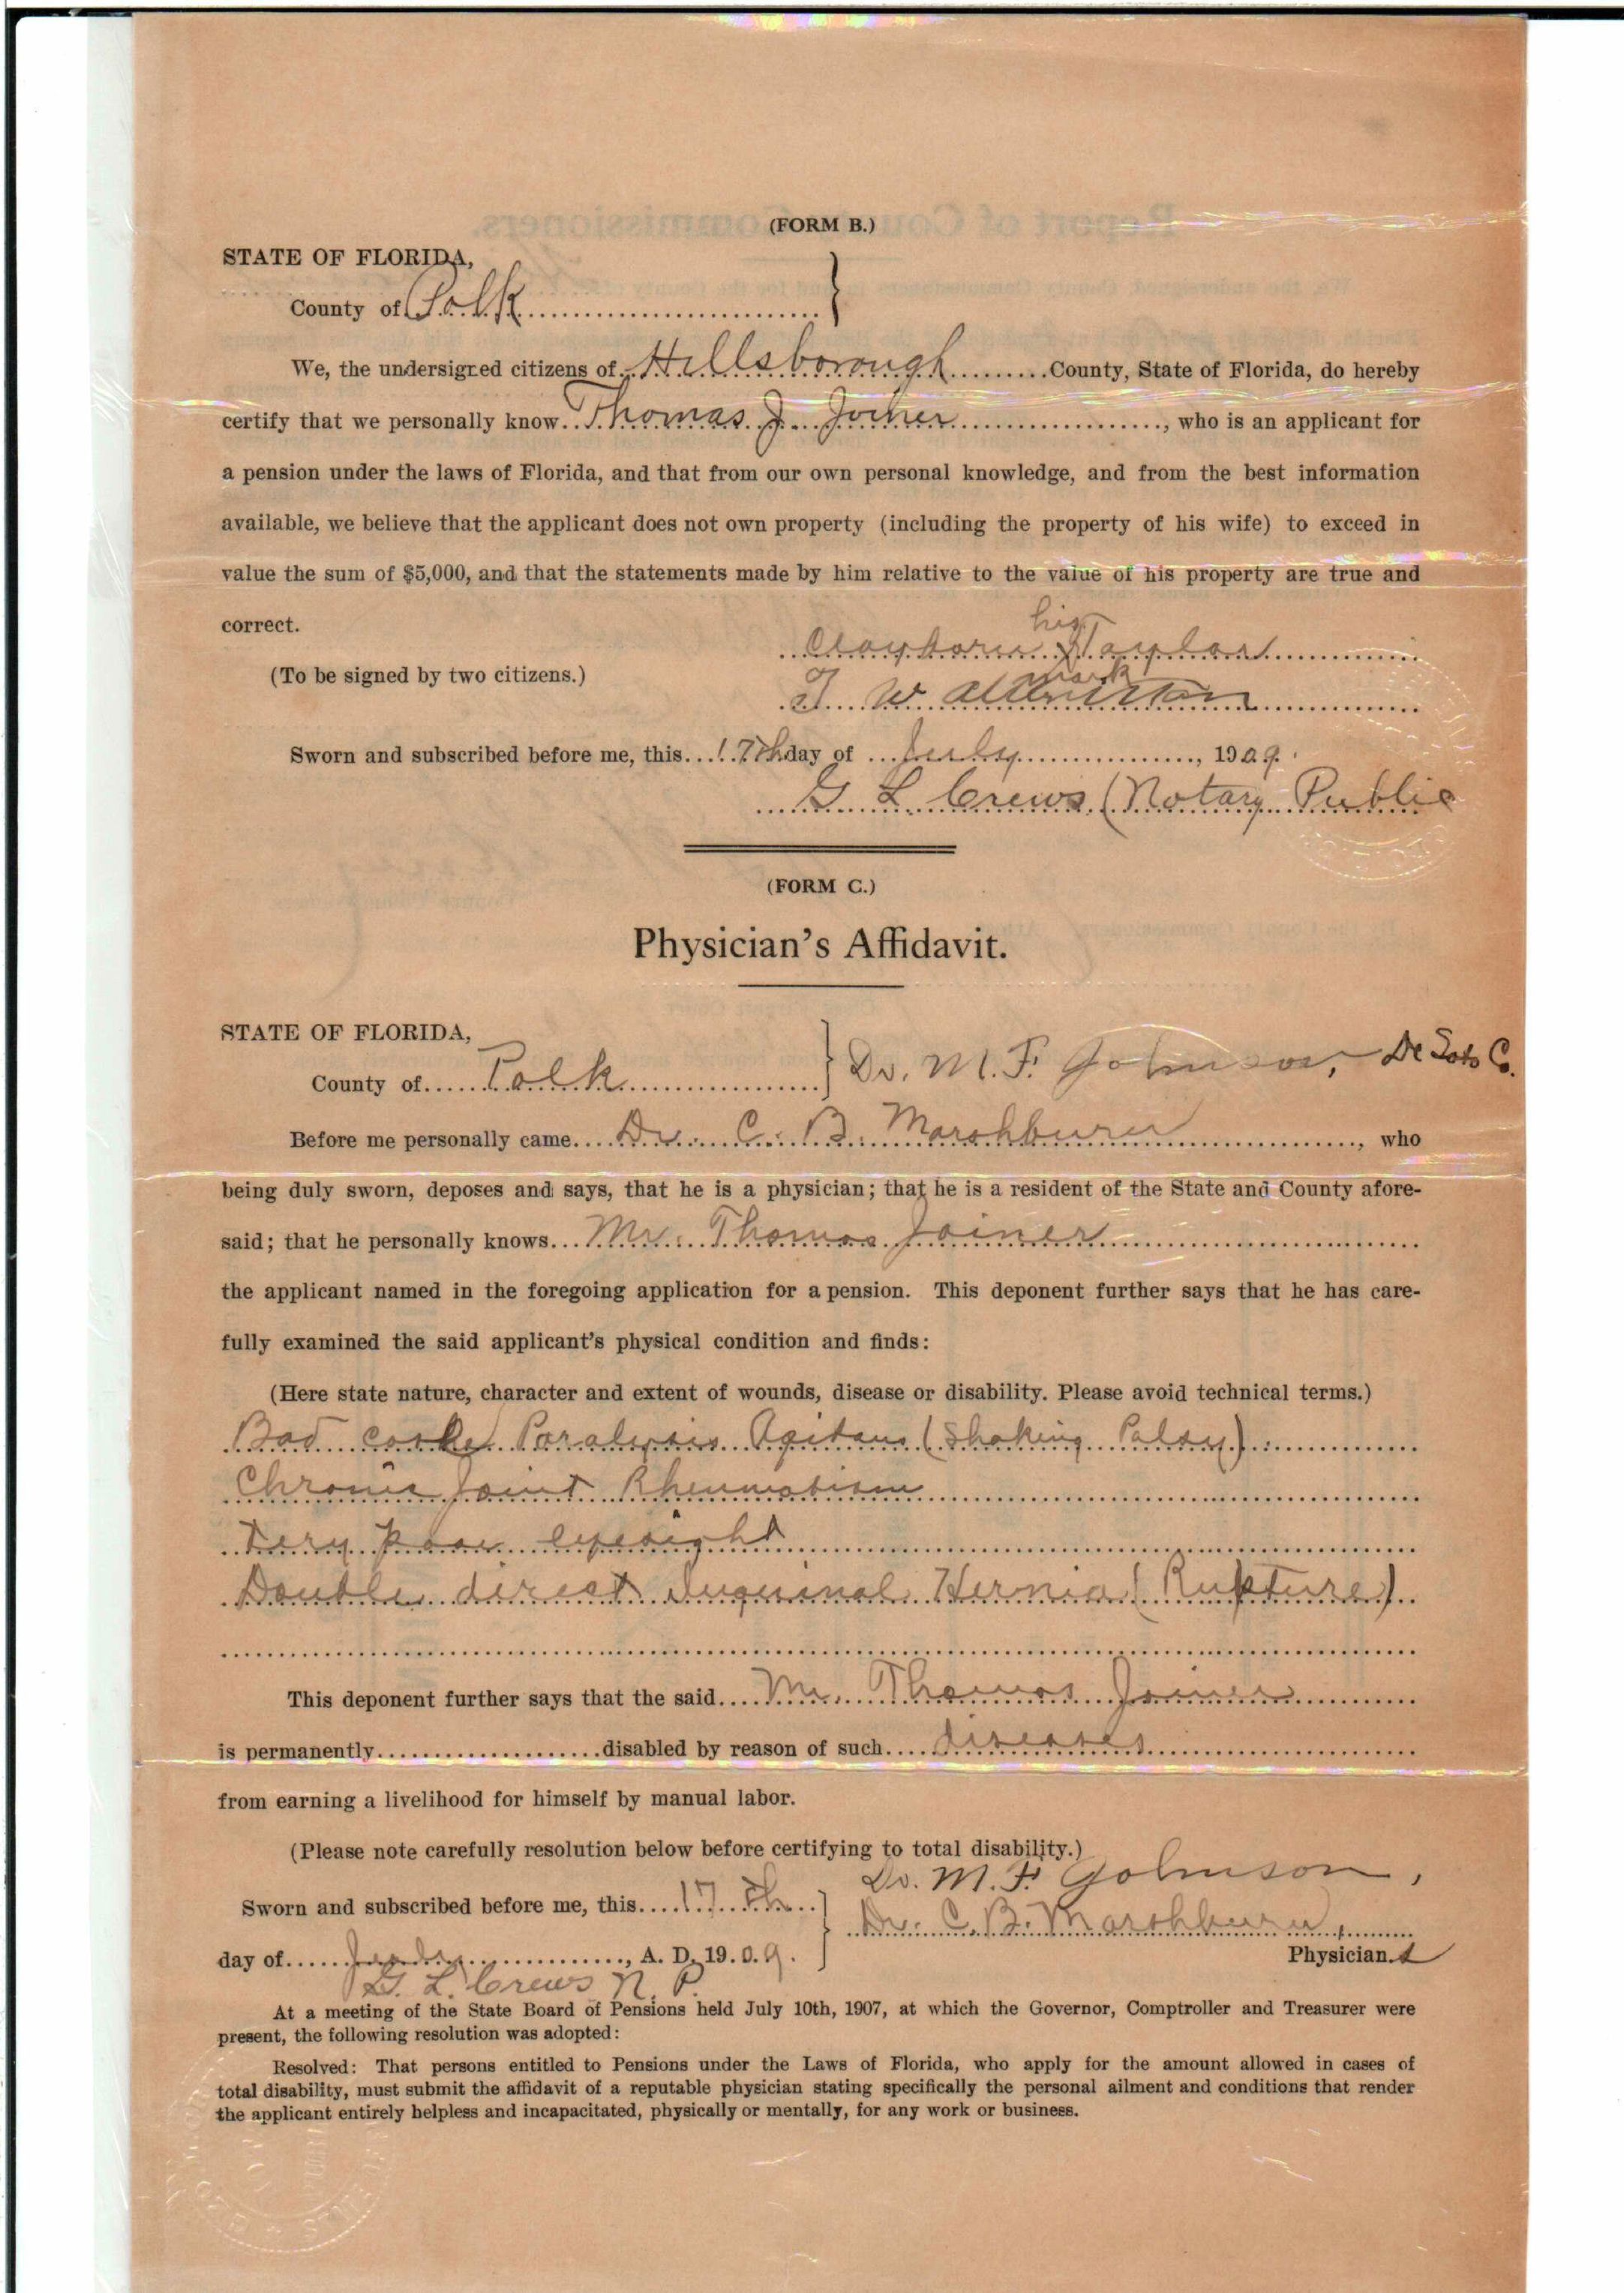 (FORM B.)
STATE OF FLORIDA,
County of Polk }
We, the undersigned citizens of Hillsborough County, State of Florida, do hereby
certify that we personally know Thomas J. Joiner, who is an applicant for
a pension under the laws of Florida, and that from our own personal knowledge, and from the best information
available, we believe that the applicant does not own property (including the property of his wife) to exceed in
value the sum of $5,000, and that the statements made by him relative to the value of his property are true and
correct.
his
Clayborn X Taylor
mark
(To be signed by two citizens.)
T. W. Albritton
Sworn and subscribed before me, this 17th day of July, 1909.
G L Crews (Notary Public
(FORM C.)
Physician's Affidavit.
STATE OF FLORIDA,
County of Polk } Dr. M. F. Johnson, De Soto Co.
Before me personally came Dr. C. B. Marshburn, who
being duly sworn, deposes and says, that he is a physician; that he is a resident of the State and County afore-
said; that he personally knows Mr. Thomas Joiner
the applicant named in the foregoing application for a pension. This deponent further says that he has care-
fully examined the said applicant's physical condition and finds:
(Here state nature, character and extent of wounds, disease or disability. Please avoid technical terms.)
Bad case Paralysis Agitans (Shaking Palsy)
Chronic Joint Rheumatism
Very poor eyesight
Double direct Inguinal Hernia (Rupture)
This deponent further says that the said Mr. Thomas Joiner
is permanently disabled by reason of such diseases
from earning a livelihood for himself by manual labor.
(Please note carefully resolution below before certifying to total disability.)
Dr. M. F. Johnson,
Sworn and subscribed before me, this 17th }
Dr. C. B. Marshburn,
day of July, A. D. 1909.
Physicians
G. L. Crews N. P.
At a meeting of the State Board of Pensions held July 10th, 1907, at which the Governor, Comptroller and Treasurer were
present, the following resolution was adopted:
Resolved: That persons entitled to Pensions under the Laws of Florida, who apply for the amount allowed in cases of
total disability, must submit the affidavit of a reputable physician stating specifically the personal ailment and conditions that render
the applicant entirely helpless and incapacitated, physically or mentally, for any work or business.